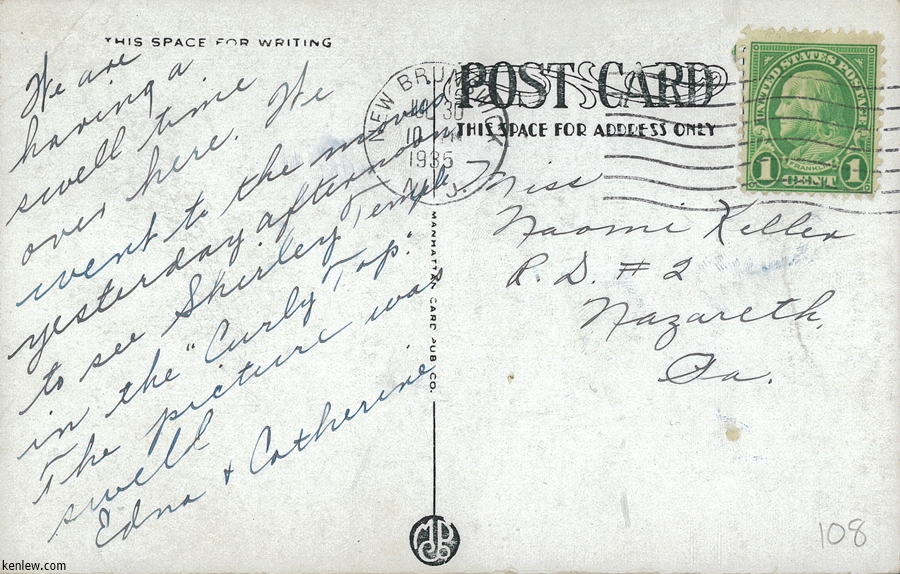 THIS SPACE FOR WRITING
We are
having a
swell time
over here. We
went to the movies
yesterday afternoon
to see Shirley Temple
in the "Curly Top."
The picture was
swell
Edna + Catherine
NEW BRUNSWICK
30
10
1935
N. J.
POST CARD
THIS SPACE FOR ADDRESS ONLY
UNITED STATES POSTAGE
FRANKLIN
1 CENT 1
Miss
Naomi Keller
R. D. # 2
Nazareth,
Pa.
MANHATTAN CARD PUB. CO.
108
kenlew.com